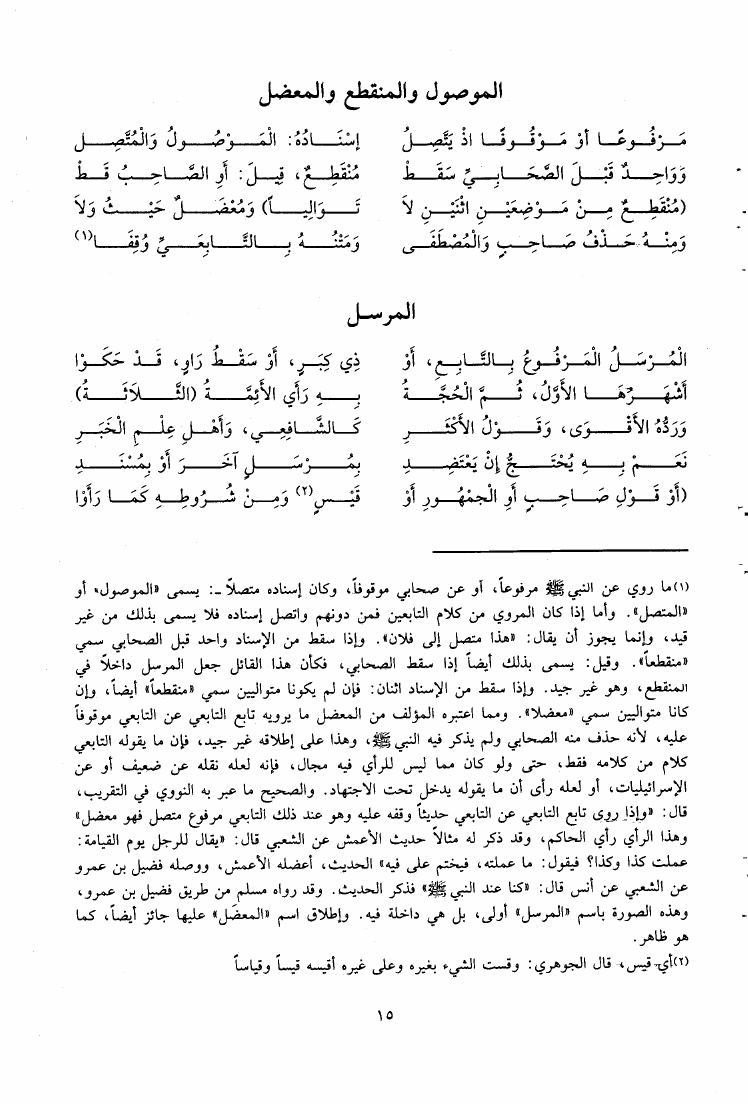 الموصول والمنقطع والمعضل
مَرْفُوعًا أَوْ مَوْقُوفًا اذْ يَتَّصِلُ إِسْنَادُهُ: الْمَوْصُولُ وَالْمُتَّصِلُ
وَوَاحِدٌ قَبْلَ الصَّحَابِيِّ سَقَطْ مُنْقَطِعٌ، قِيلَ: أَوِ الصَّاحِبُ قَطْ
(مُنْقَطِعٌ مِنْ مَوْضِعَيْنِ اثْنَيْنِ لَا تَوَالِيـاً) وَمُعْضَلٌ حَيْثُ وَلَا
وَمِنْهُ حَذْفُ صَاحِبٍ وَالْمُصْطَفَى وَمَتْنُهُ بِالتَّابِعِيِّ وُقِفَا(١)
المرسل
الْمُرْسَلُ الْمَرْفُوعُ بِالتَّابِعِ، أَوْ ذِي كِبَرٍ، أَوْ سَقْطُ رَاوٍ، قَدْ حَكَوْا
أَشْهَرُهَا الأَوَّلُ، ثُمَّ الْحُجَّةُ بِهِ رَأْيُ الأَئِمَّةِ (الثَّلَاثَةُ)
وَرَدُّهُ الأَقْوَى، وَقَوْلُ الأَكْثَرِ كَالشَّافِعِي، وَأَهْلِ عِلْمِ الْخَبَرِ
نَعَمْ بِهِ يُحْتَجُّ إِنْ يَعْتَضِدِ بِمُرْسَلٍ آخَرَ أَوْ بِمُسْنَدِ
(أَوْ قَوْلِ صَاحِبٍ أَوِ الْجُمْهُورِ أَوْ قَيْسٍ(٢) وَمِنْ شُرُوطِهِ كَمَا رَأَوْا
(١)ما روي عن النبي ﷺ مرفوعاً، أو عن صحابي موقوفاً، وكان إسناده متصلاً ـ: يسمى «الموصول» أو
«المتصل». وأما إذا كان المروي من كلام التابعين فمن دونهم واتصل إسناده فلا يسمى بذلك من غير
قيد، وإنما يجوز أن يقال: «هذا متصل إلى فلان». وإذا سقط من الإسناد واحد قبل الصحابي سمي
«منقطعاً». وقيل: يسمى بذلك أيضاً إذا سقط الصحابي، فكأن هذا القائل جعل المرسل داخلاً في
المنقطع، وهو غير جيد. وإذا سقط من الإسناد اثنان: فإن لم يكونا متواليين سمي «منقطعاً» أيضاً، وإن
كانا متواليين سمي «معضلا». ومما اعتبره المؤلف من المعضل ما يرويه تابع التابعي عن التابعي موقوفاً
عليه، لأنه حذف منه الصحابي ولم يذكر فيه النبي ﷺ، وهذا على إطلاقه غير جيد، فإن ما يقوله التابعي
كلام من كلامه فقط، حتى ولو كان مما ليس للرأي فيه مجال، فإنه لعله نقله عن ضعيف أو عن
الإسرائيليات، أو لعله رأى أن ما يقوله يدخل تحت الاجتهاد. والصحيح ما عبر به النووي في التقريب،
قال: «وإذا روى تابع التابعي عن التابعي حديثاً وقفه عليه وهو عند ذلك التابعي مرفوع متصل فهو معضل»
وهذا الرأي رأي الحاكم، وقد ذكر له مثالاً حديث الأعمش عن الشعبي قال: «يقال للرجل يوم القيامة:
عملت كذا وكذا؟ فيقول: ما عملته، فيختم على فيه» الحديث، أعضله الأعمش، ووصله فضيل بن عمرو
عن الشعبي عن أنس قال: «كنا عند النبي ﷺ» فذكر الحديث. وقد رواه مسلم من طريق فضيل بن عمرو،
وهذه الصورة باسم «المرسل» أولى، بل هي داخلة فيه. وإطلاق اسم «المعضَل» عليها جائز أيضاً، كما
هو ظاهر.
(٢)أي قيس، قال الجوهري: وقست الشيء بغيره وعلى غيره أقيسه قيساً وقياساً
١٥